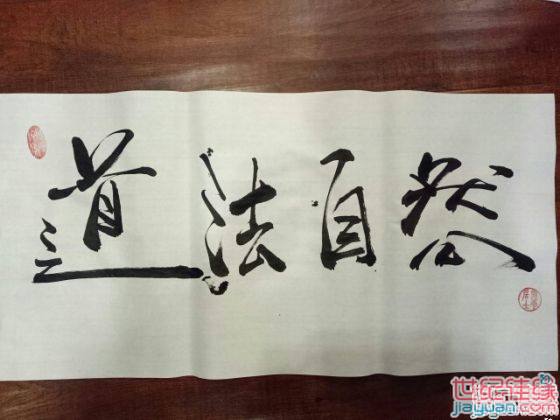 道法自然
世纪佳缘
jiayuan.com